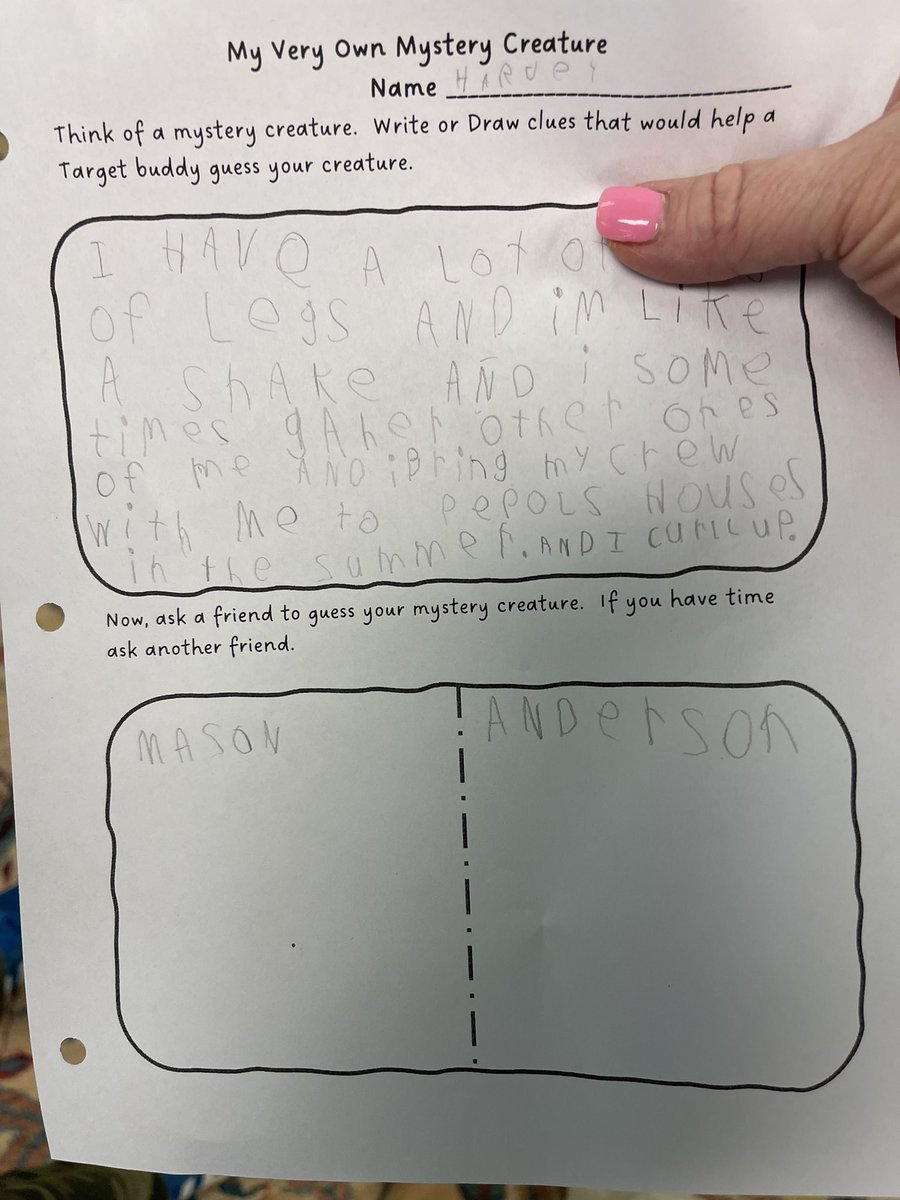 My Very Own Mystery Creature
Name HARVEY
Think of a mystery creature. Write or Draw clues that would help a
Target buddy guess your creature.
I HAVe A Lot
of Legs AND im Like
A ShAKe AND i SOMe
times gAher other ones
of me AND iBring my crew
with Me to PePOLS HOUSes
in the summer. AND I CURLL UP.
Now, ask a friend to guess your mystery creature. If you have time
ask another friend.
MASON
ANDerson